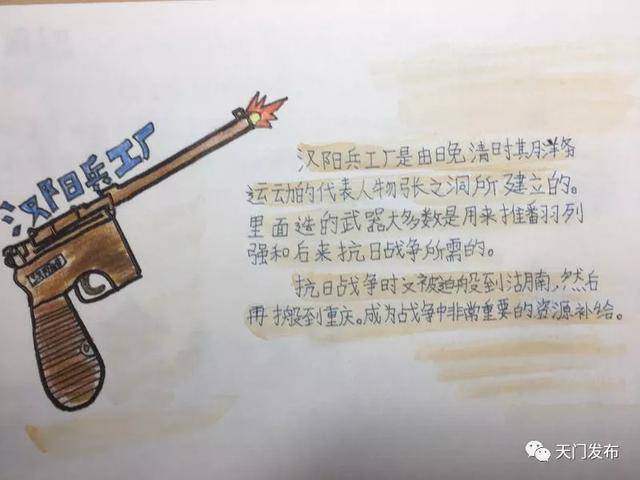 汉阳兵工厂
汉阳兵工厂是由晚清时期洋务
运动的代表人物张之洞所建立的。
里面造的武器大多数是用来推翻列
强和后来抗日战争所需的。
抗日战争时又被迫般到湖南,然后
再搬到重庆。成为战争中非常重要的资源补给。
天门发布